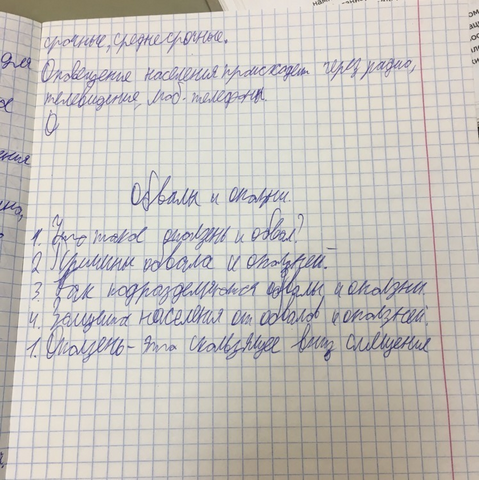 срочные, среднесрочные.
Оповещение населения происходет через радио,
телевидение, моб-телефоны.
О
Обвалы и оползни.
1. Что такое оползень и обвал?
2 Причины обвала и оползней.
3. Как подразделяются обвалы и оползни
4. Защита населения от обвалов и оползней.
1. Оползень - это скользящее вниз смещения